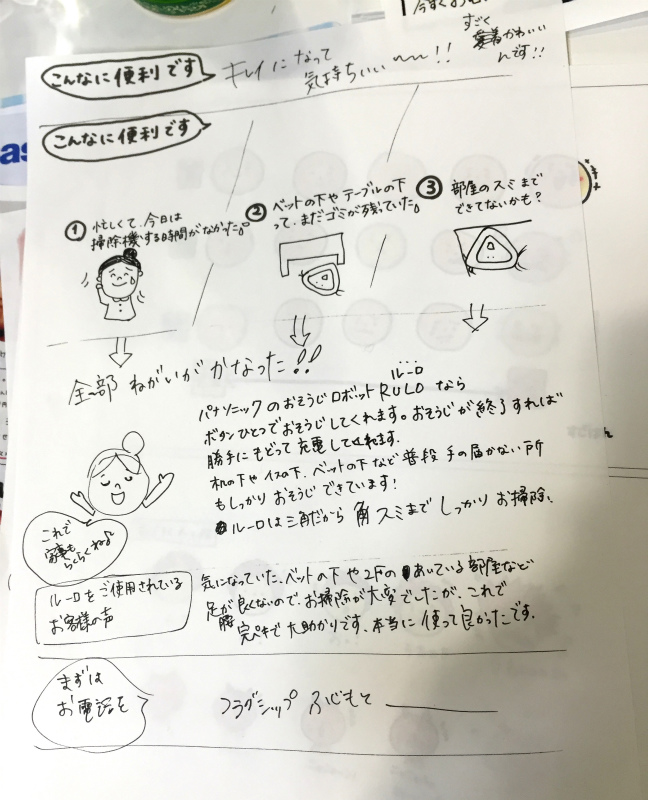 今すぐ
すごく
かわいい
んです!!
こんなに便利です
キレイになって
気持ちいい〜〜!!
こんなに便利です
① 忙しくて、今日は
掃除機する時間がなかった。
② ベットの下や テーブルの下
って、まだゴミが残っていた。
③ 部屋のスミまで
できてないかも?
全部 ねがいが かなった!!
ルーロ
パナソニックの おそうじロボット RULO なら
ボタンひとつでおそうじしてくれます。おそうじが終了すれば
勝手に もどって 充電してくれます.
机の下や イスの下、ベットの下など 普段 手の届かない 所
もしっかり おそうじ できています!
ルーロは三角だから 角 スミまで しっかり お掃除、
これで
家事も
らくらくね♪
ルーロをご使用されている
お客様の声
気になっていた、ベットの下や2Fの あいている部屋など
足が良くないので、お掃除が大変でしたが、これで
完ペキで大助かりです、本当に使って良かったです.
まずは
お電話を
フラグシップ ふじもと